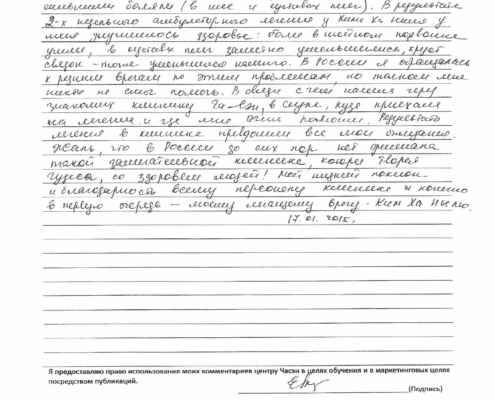 сильными болями (в шее и суставах ног). В результате
2-х недельного амбулаторного лечения у Ким Ха Ныла у
меня улучшилось здоровье: боли в шейном позвонке
ушли, в суставах ног заметно уменьшились, хруст
связок – тоже уменьшился намного. В России я обращалась
к разным врачам по этим проблемам, но толком мне
никто не смог помочь. В связи с чем нашла через
знакомых клинику Ча-Сэн, в Сеуле, куда приехала
на лечение и где мне очень помогли. Результат
лечения в клинике превзошли все мои ожидания.
Жаль, что в России до сих пор нет филиала
такой замечательной клиники, которая творит
чудеса, со здоровьем людей! Мой низкий поклон
и благодарность всему персоналу клиники и конечно
в первую очередь – моему лечащему врачу – Ким Ха Нылю.
17.01.2015.
Я предоставляю право использования моих комментариев центру Часэн в целях обучения и в маркетинговых целях
посредством публикаций.
(Подпись)